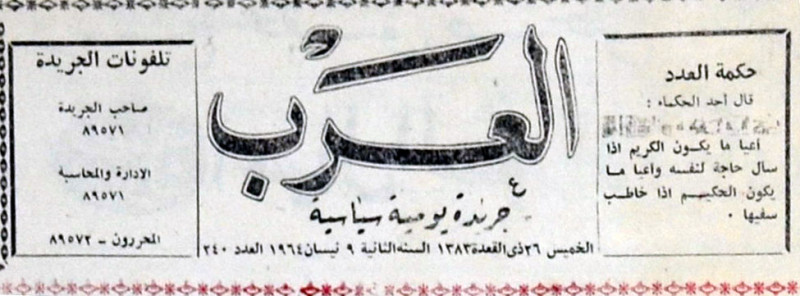 حكمة العدد
قال أحد الحكماء :
أعيا ما يكون الكريم اذا
سال حاجة لنفسه وأعيا ما
يكون الحكيم اذا خاطب
سفيها ٠
العرب
جريدة يومية سياسية
الخميس ٢٦ ذي القعدة ١٣٨٣ السنه الثانية ٩ نيسان ١٩٦٤ العدد ٢٤٠
تلفونات الجريدة
صاحب الجريدة
٨٩٥٧١
الادارة والمحاسبة
٨٩٥٧١
المحررون - ٨٩٥٧٢